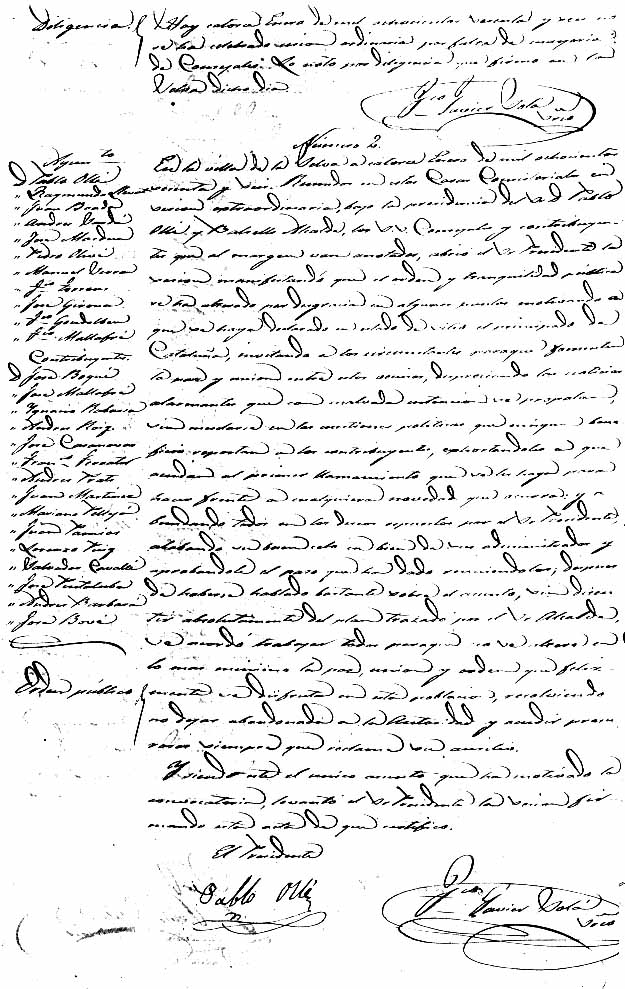 Diligencia
Hoy catorce Enero de mil ochocientos sesenta y seis no
se ha celebrado sesion ordinaria por falta de mayoria
de Concejales. Lo noto por diligencia que firmo en la
Selva dicho dia
Fco Javier Solá
Srio
Número 2.
Ayunto
D Pablo Ollé
" Raymundo
" José
" Andres
" José
" Pedro Olivé
" Manuel
" José Girona
" Mallafré
Contribuyentes
D José Boqué
" José Mallafré
" Ignacio
" Andres Puig
" José Casanovas
" Andres
" Juan Martinez
" Mariano
" Juan
" Lorenzo Puig
" Salvador Cavallé
" José
" Andres Barberá
" José Bové
En la villa de la Selva a catorce Enero de mil ochocientos
sesenta y seis. Reunidos en estas Casas Consistoriales en
sesion extraordinaria, bajo la presidencia del Sr D Pablo
Ollé y Alcalde, los SS. Concejales y contribuyen
tes que al margen van anotados, abrió el Sr Presidente la
sesion manifestando que el orden y tranquilidad pública
se ha alterado por desgracia en algunos pueblos motivando a
que se haya declarado en estado de sitio el principado de
Cataluña, invitando a los circunstantes paraque fomenten
la paz y union entre estos vecinos, despreciando las noticias
alarmantes que con malvada intencion se propalan,
sin mezclarse en las cuestiones politicas que ningun bene
ficio reportan a los contribuyentes, exhortandoles a que
acudan al primer llamamiento que se les haga para
hacer frente a cualquiera novedad que ocurra: y a
bundando todos en los deseos espuestos por el Sr Presidente,
alabando su buen celo en bien de sus administrados y
aprobandole el paso que ha dado reuniendoles, despues
de haberse hablado bastante sobre el asunto, sin discu
tir absolutamente del plan trazado por el Sr Alcalde,
se acordó trabajar todos paraque no se altere en
lo mas minimo la paz, union y orden que feliz
mente se disfruta en esta poblacion, resolviendo
no dejar abandonada a la Autoridad y acudir presu
rosos siempre que reclame su auxilio.
Orden público
Y siendo este el unico asunto que ha motivado la
convocatoria, levantó el Sr Presidente la sesion fir
mando esta acta de que certifico.
El Presidente
Pablo Ollé
Fco Javier Solá
Srio